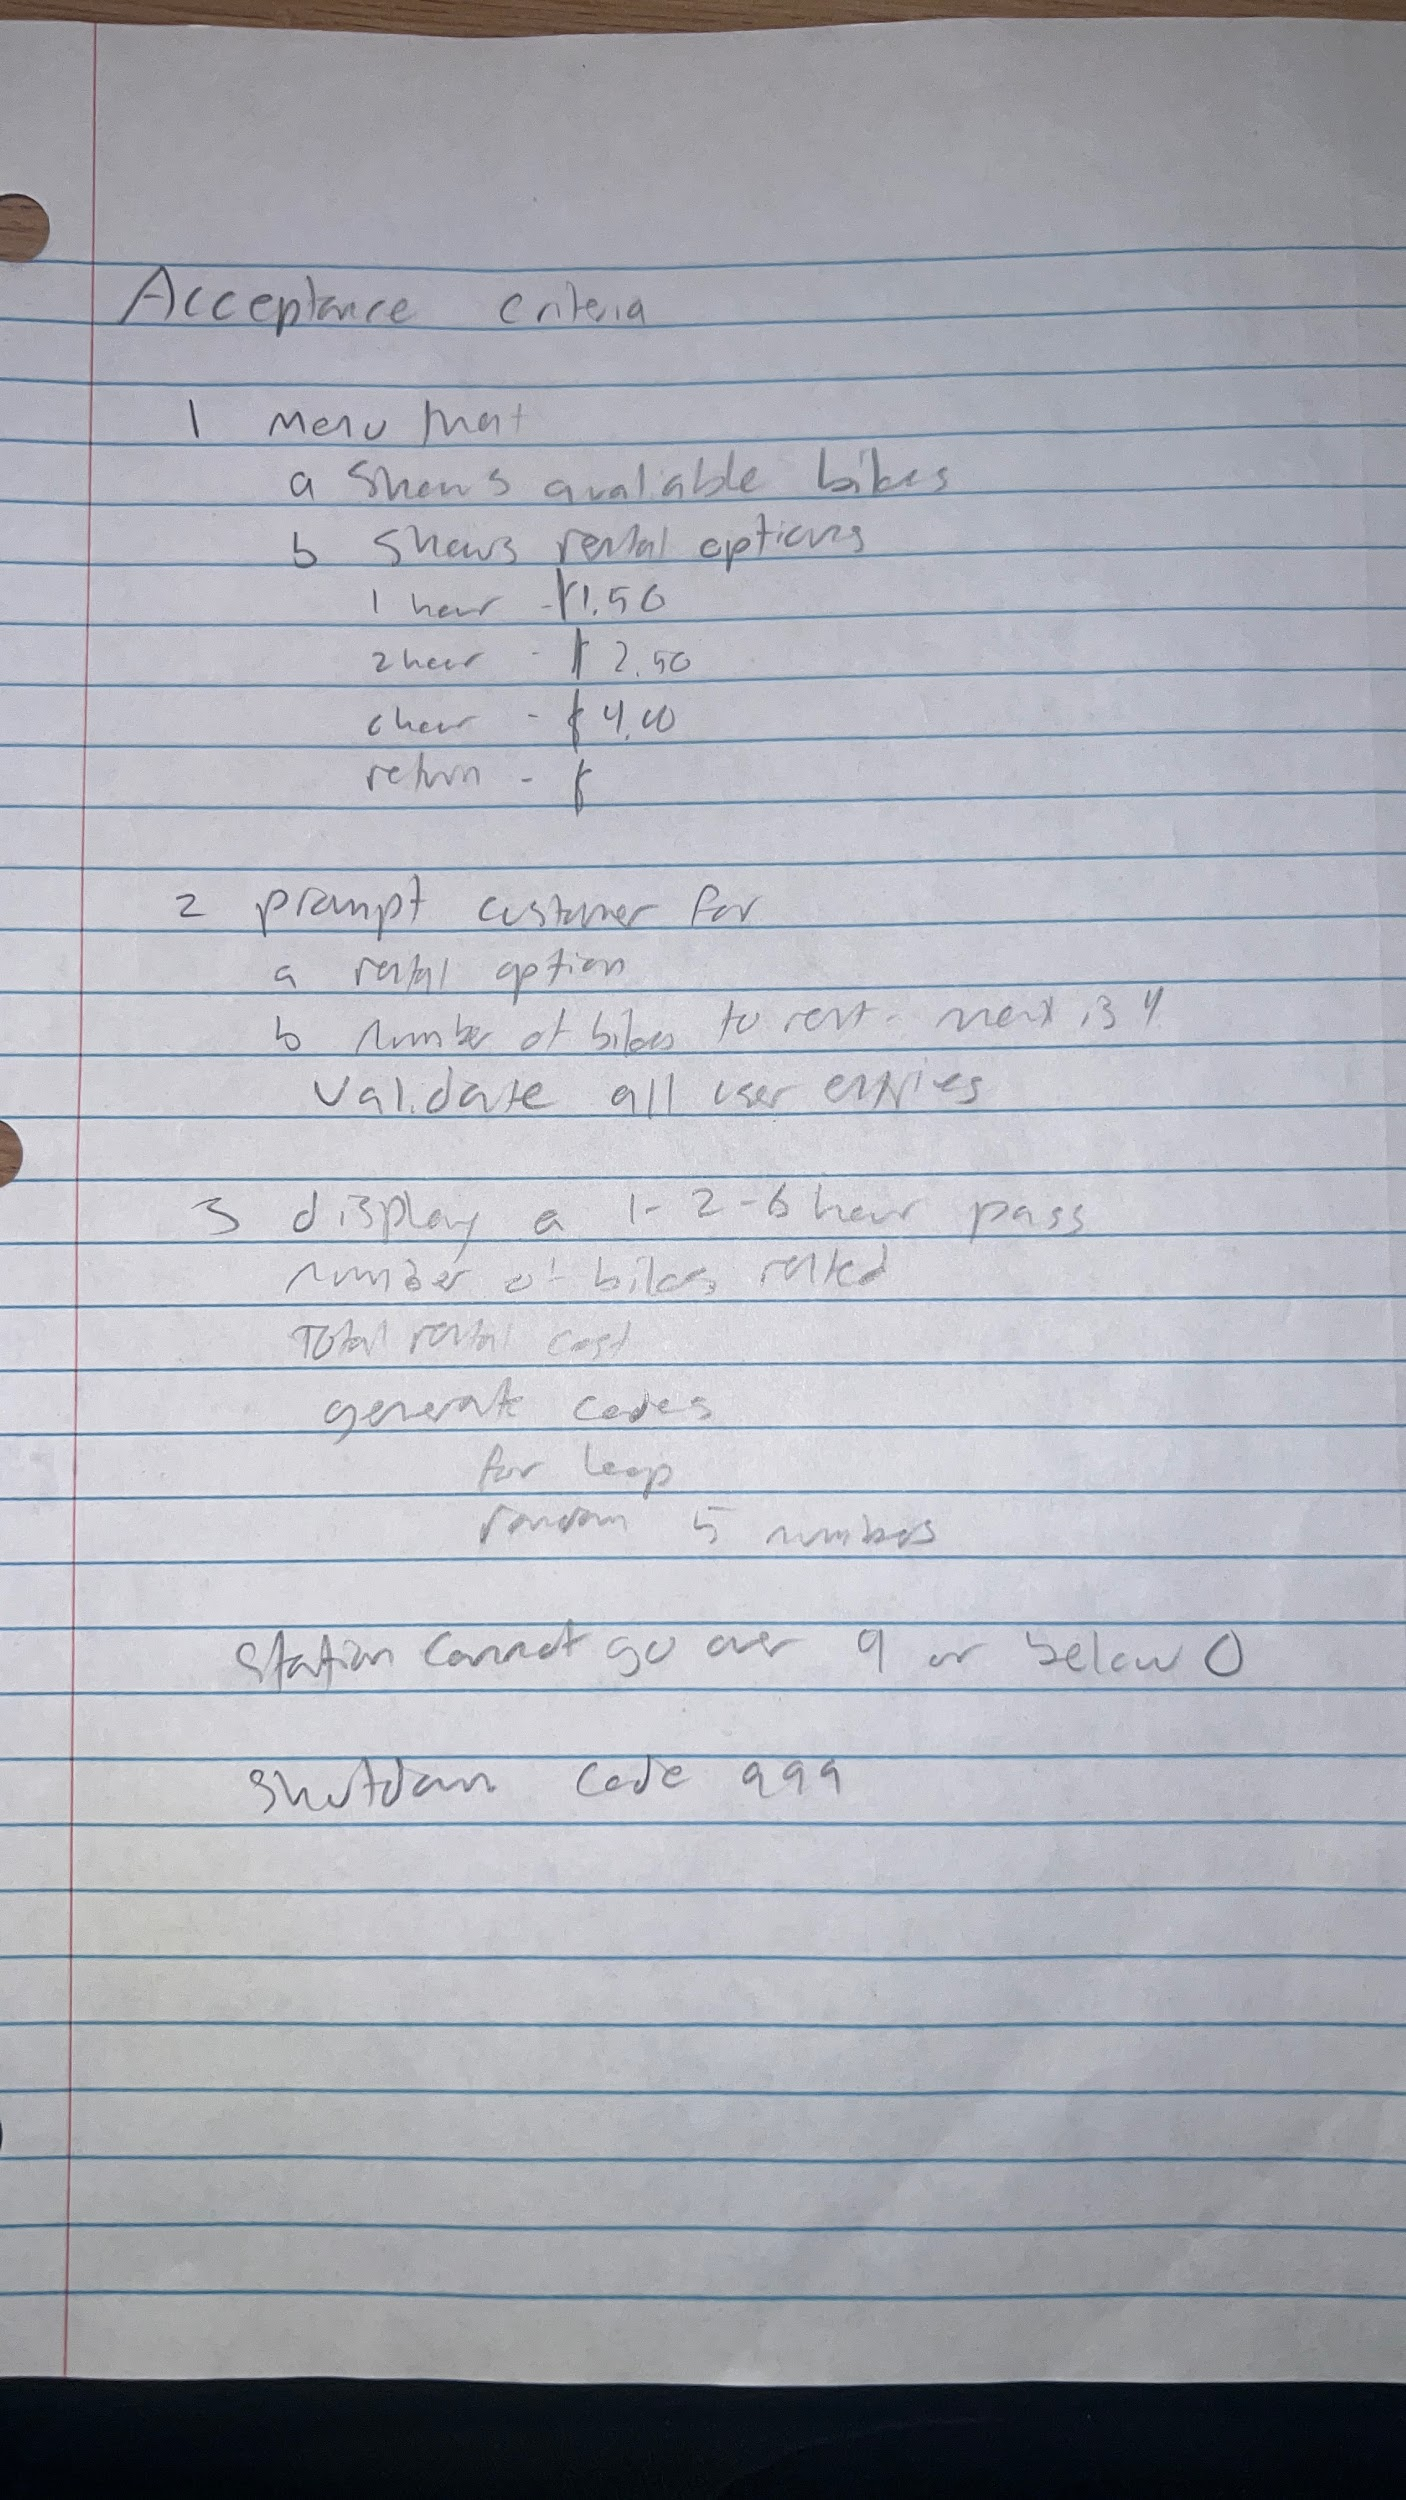 Acceptance criteria
1 Menu that
a Shows avaliable bikes
b Shows rental options
1 hour - $1.50
2 hour - $2.50
6 hour - $4.00
return - $
2 prompt customer for
a rental option
b number of bikes to rent - max is 4
Validate all user entries
3 display a 1-2-6 hour pass
number of bikes rented
Total rental cost
generate codes
for loop
random 5 numbers
Station cannot go over 9 or below 0
Shutdown Code 999